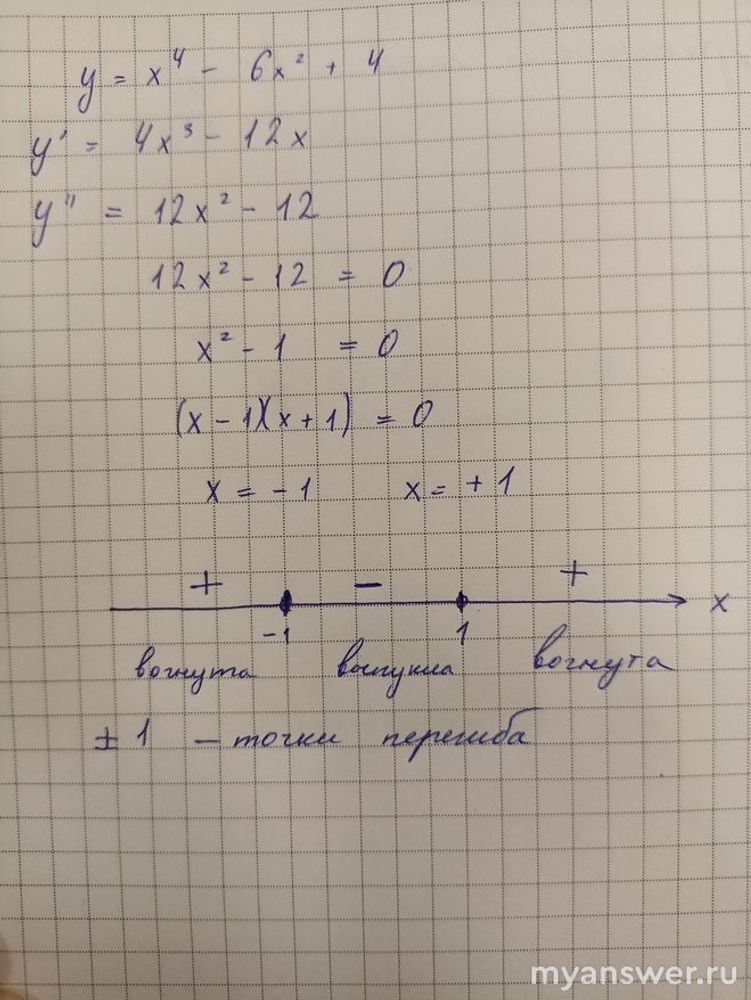 y = x⁴ - 6x² + 4
y' = 4x³ - 12x
y'' = 12x² - 12
12x² - 12 = 0
x² - 1 = 0
(x - 1)(x + 1) = 0
x = - 1 x = + 1
+ - +
-1 1 x
вогнута выпукла вогнута
± 1 - точки перегиба
myanswer.ru